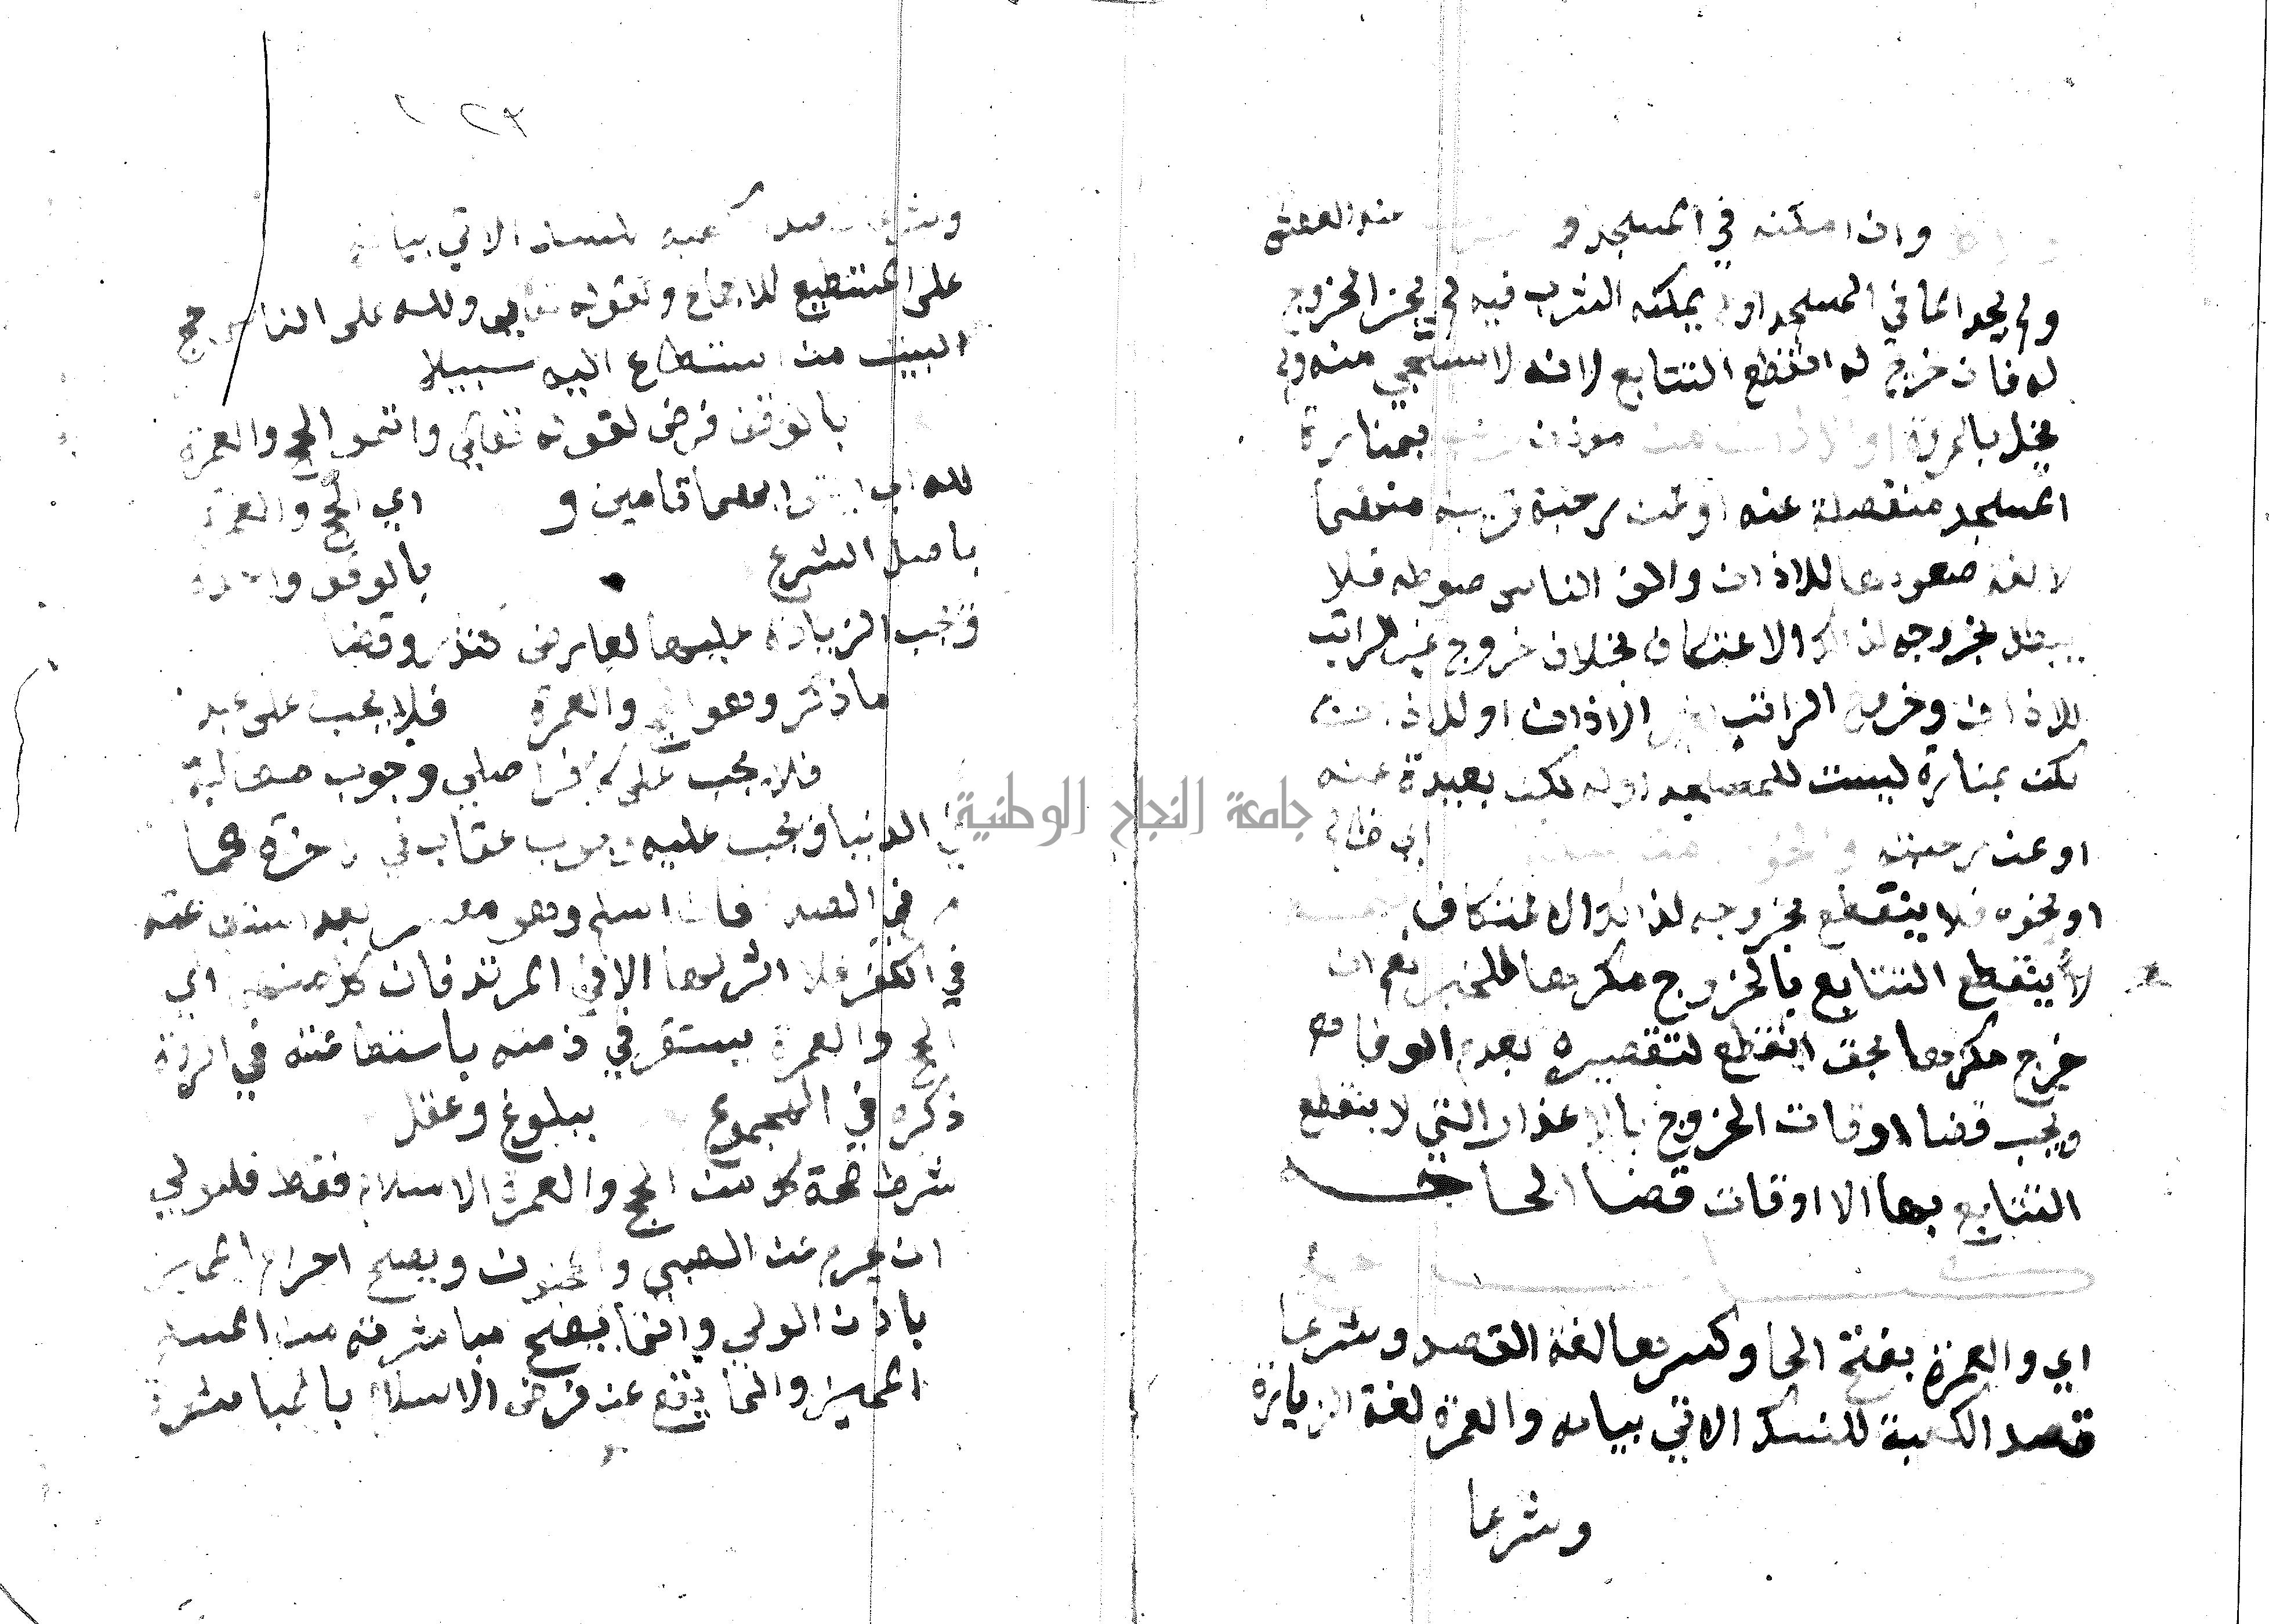 وان امكنه في المسجد و منه العطش
ولم يجد الما في المسجد اولم يمكنه الشرب فيه لم يجز الخروج
له فان خرج له انقطع التتابع لانه لا يستحيي منه ولم
يخل بالمروة او لاذان من موذن بمنارة
المسجد منفصلة عنه او عن رحبته قريبه منهما
لالفه صعودها للاذان والف الناس صوته فلا
يبطل بخروجه لذلك الاعتكاف بخلاف خروج غير الراتب
للاذان وخروج الراتب لغير الاذان او للاذان
لكن بمنارة ليست للمسجد اوله لكن بعيدة عنه
او عن رحبته
او نحوه فلا ينقطع بخروجه لذلك الاعتكاف
لا ينقطع التتابع بالخروج مكرها للخبر نعم ان
خرج مكرها بحق انقطع لتقصيره بعدم الوفا
ويجب قضا اوقات الخروج بالاعذار التي لا ينقطع
التتابع بها الا اوقات قضا الحاجه
اي والعمرة بفتح الحا وكسرها لغة القصد وشرعا
قصد الكعبة للنسك الاتي بيانه والعمرة لغة الزيارة
وشرعا
٢٣
وشرعا قصد الكعبه للنسك الاتي بيانه
على المستطيع للاجماع ولقوله تعالى ولله على الناس حج
البيت من استطاع اليه سبيلا
بالوقف فرض لقوله تعالى واتموا الحج والعمرة
لله اي ايتوا بهما تامين و اي الحج والعمرة
باصل الشرع
وتجب الزيادة عليها لعارض كنذر وقضا
ماذكر وهو الحج والعمرة فلا يجب على عبد
فلا يجب على كافر اصلي وجوب مطالبة
في الدنيا ويجب عليه وجوب عقاب في الاخرة كما
مر في فان اسلم وهو معسر بعد استطاعته
في الكفر فلا اثر لها الا في المرتد فان كلا منهما اي
الحج والعمرة يستقر في ذمته باستطاعته في الردة
ذكره في المجموع ببلوغ وعقل
شرط صحة كل من الحج والعمرة الاسلام فقط فللولي
ان يحرم عن الصبي والمجنون ويصح احرام المميز
باذن الولي وانما يصح مباشرته من المسلم
المميز وانما يقع عن فرض الاسلام بالمباشرة
جامعة النجاح الوطنية